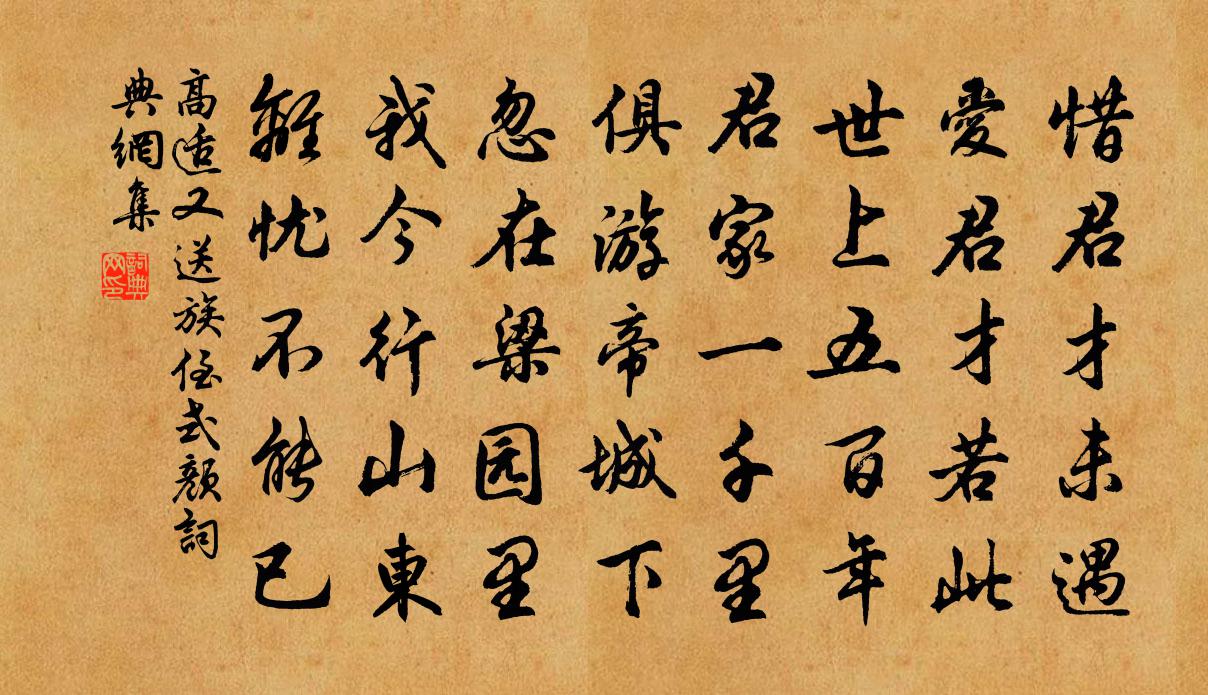 惜君才未遇
愛君才若此
世上五百年
君家一千里
俱游帝城下
忽在梁园里
我今行山東
離忧不能已
高适又送族侄式颜詞
典網集
詞典网印